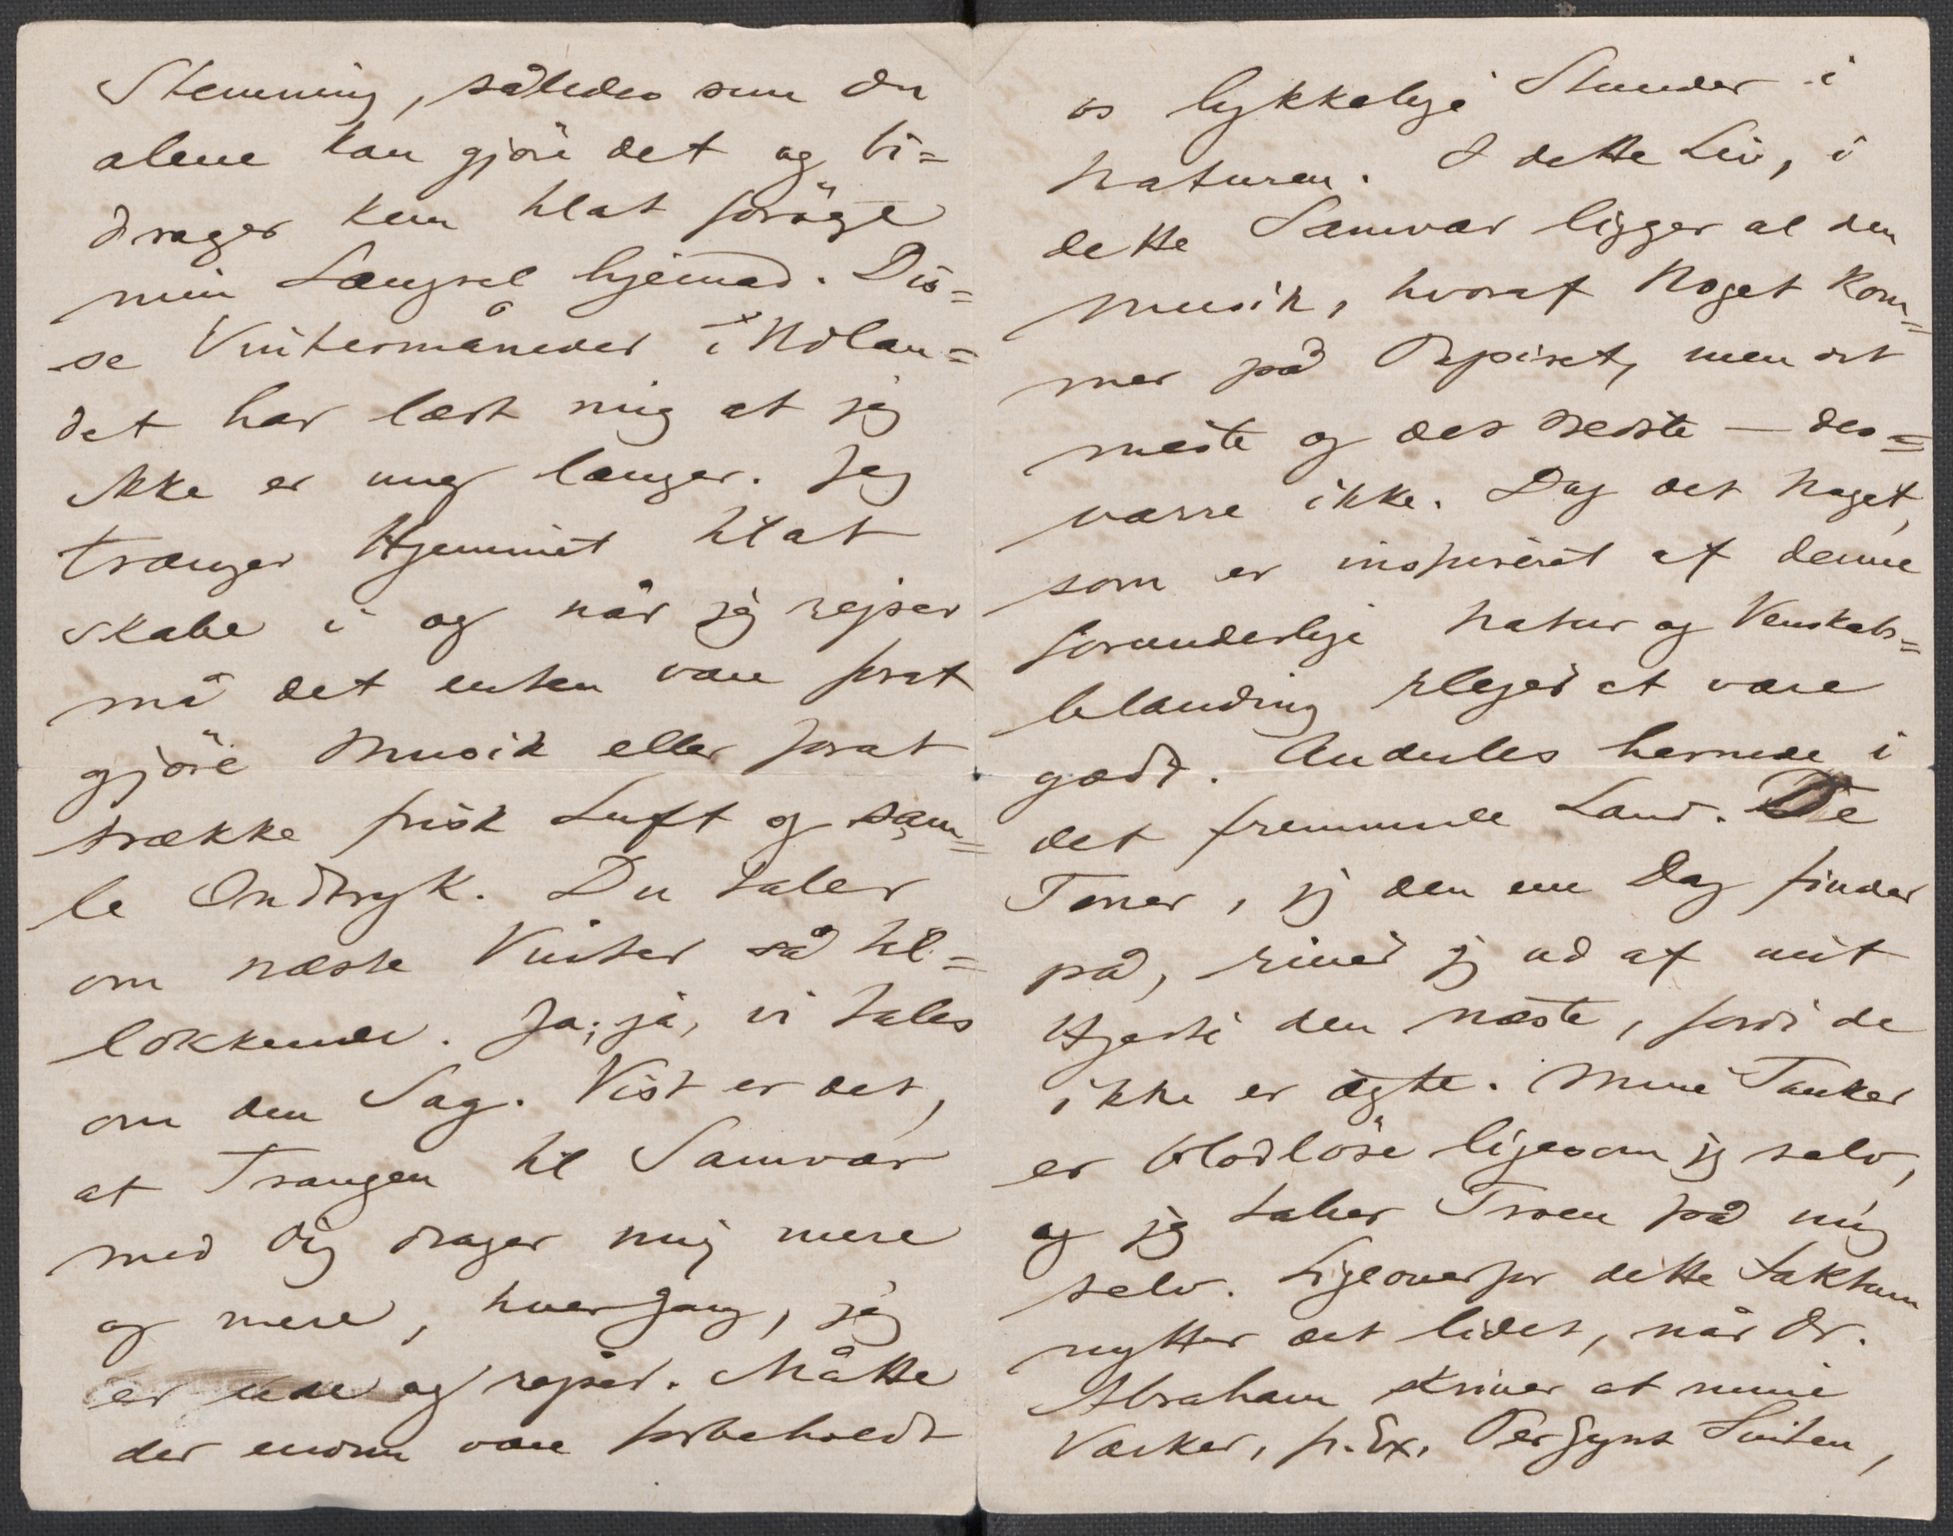 Stemning, således som du
alene kan gjöre det og bi=
drager kun til at foröge
min Længsel hjemad. Dis=
se Vintermåneder i Udlan=
det har lært mig at jeg
ikke er ung længer. Jeg
trænger Hjemmet til at
skabe i og når jeg rejser
må det enten være forat
gjöre Musik eller forat
trække frisk Luft og sam=
le Indtryk. Du taler
om næste Vinter så til=
lokkende. Ja, ja, vi tales
om den Sag. Vist er det,
at Trangen til Samvær
med dig drager mig mere
og mere, hvergang, jeg
er ude og rejser. Måtte
der endnu være forbeholdt
os lykkelige Stunder i
Naturen. I dette Liv, i
dette Samvær ligger al den
Musik, hvoraf Noget kom=
mer på Papiret, men det
meste og det bedste — des=
værre ikke. Dog det Noget,
som er inspireret af denne
forunderlige Natur og Venskabs=
blanding plejer at være
godt. Anderledes hernede i
det fremmede Land. De
Toner, jeg den ene Dag finder
på, river jeg ud af mit
Hjerte den næste, fordi de
ikke er ægte. Mine Tanker
er blodlöse ligesom jeg selv,
og jeg taber Troen på mig
selv. Ligeoverfor dette Faktum
nytter det lidet, når Dr.
Abraham skriver at mine
Værker, f. Ex. Per Gynt Suiten,